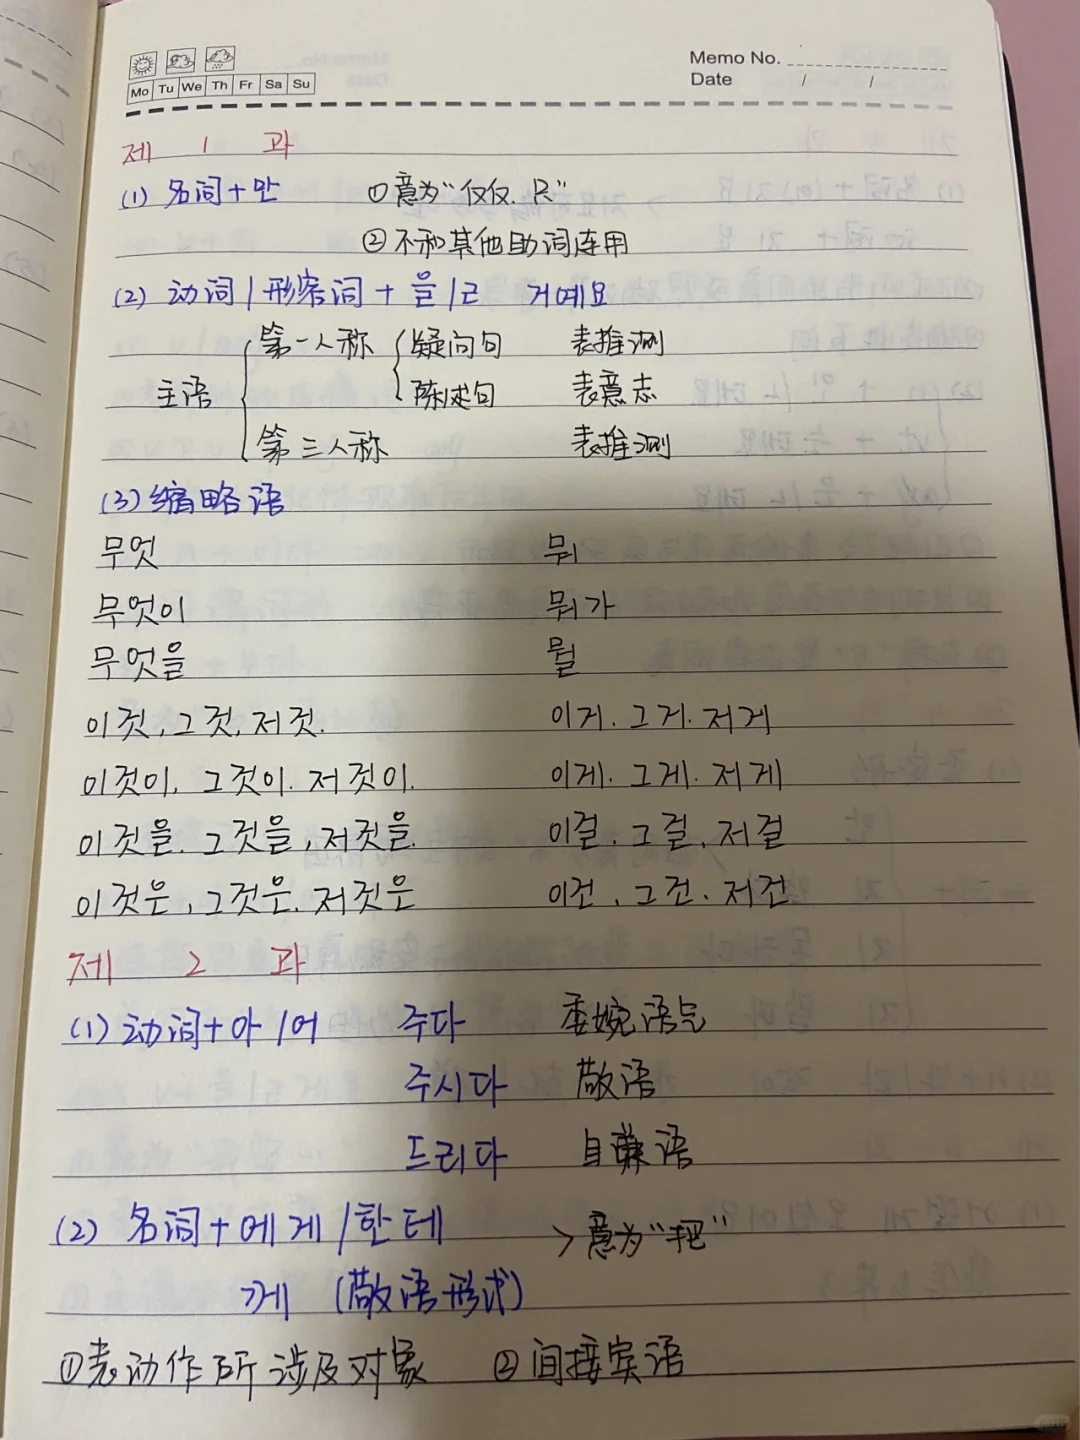 Mo Tu We Th Fr Sa Su
Memo No.
Date / /
제 1 과
(1) 名词+만 ①意为“仅仅.只”
②不和其他助词连用
(2) 动词/形容词+을/ㄹ 거예요
主语 第一人称 疑问句 表推测
陈述句 表意志
第三人称 表推测
(3)缩略语
무엇 뭐
무엇이 뭐가
무엇을 뭘
이것,그것,저것. 이거.그거.저거
이것이.그것이.저것이. 이게.그게.저게
이것을.그것을,저것을. 이걸.그걸.저걸
이것은,그것은.저것은 이건.그건.저건
제 2 과
(1)动词+아/어 주다 委婉语气
주시다 敬语
드리다 自谦语
(2) 名词+에게/한테 >意为“把”
께 (敬语形式)
①表动作所涉及对象 ②间接宾语